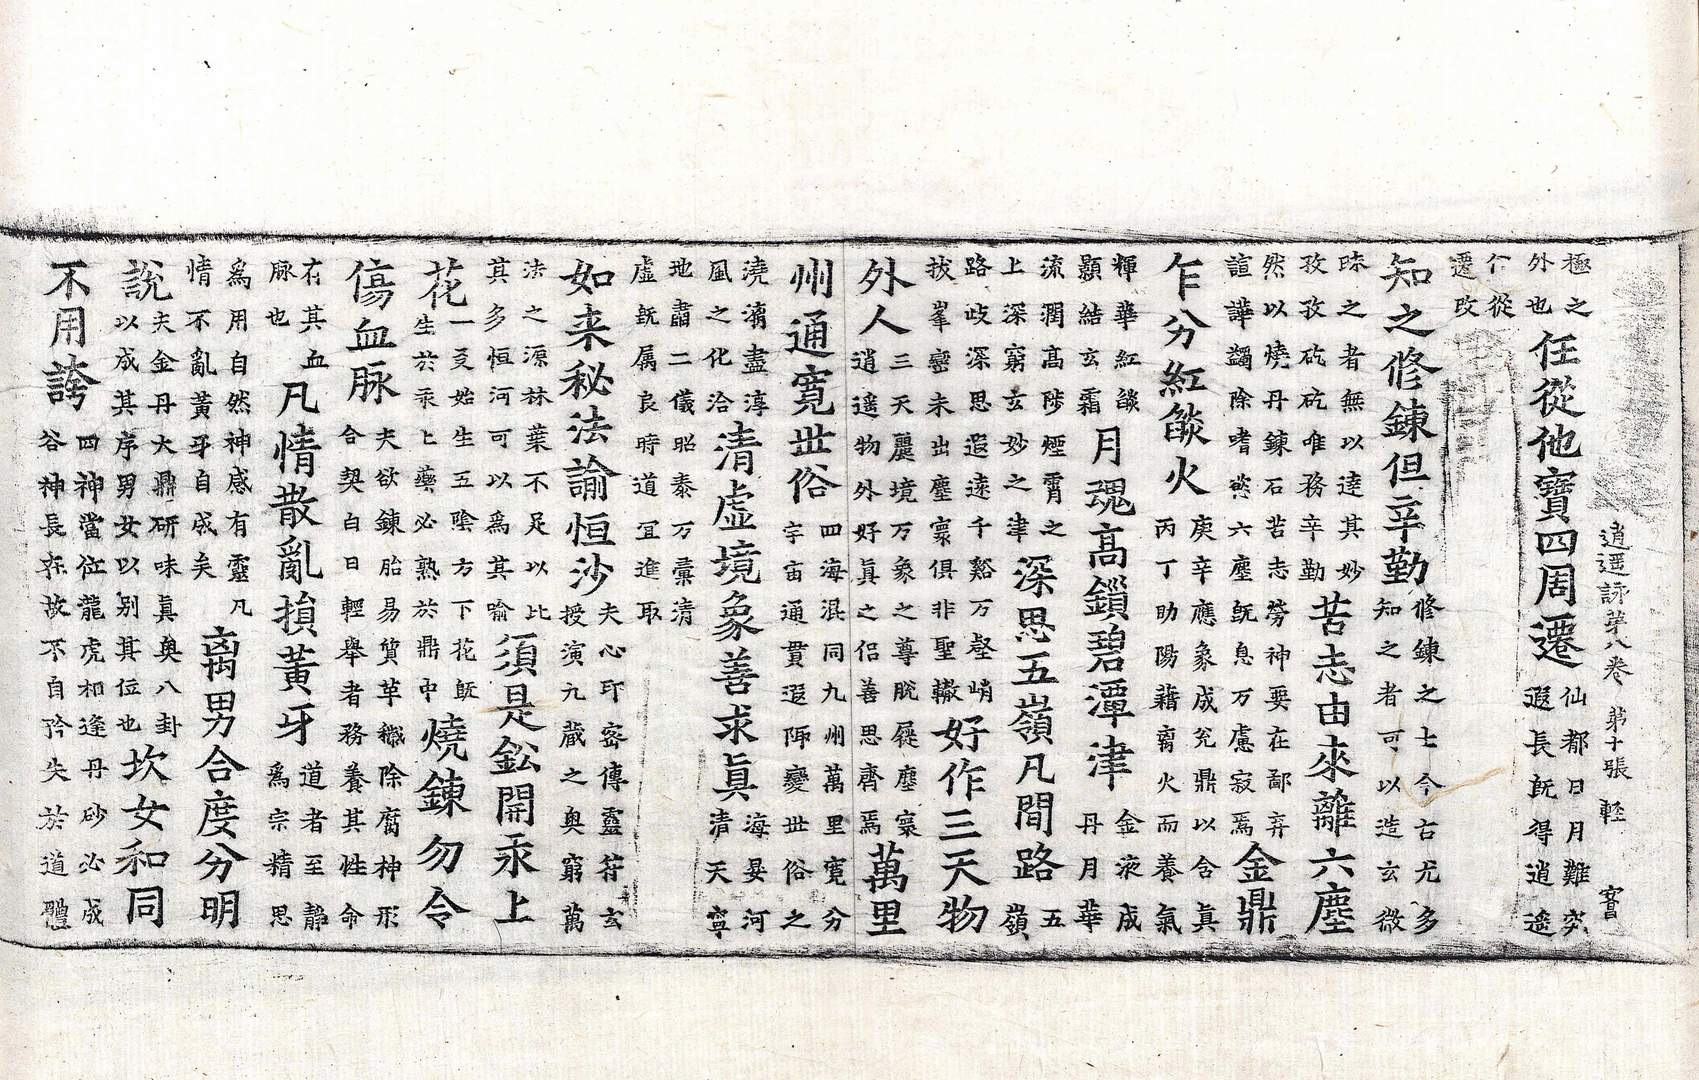 逍遥詠第八卷 第十張 軽
極之
外也
任從他寶四周遷
仙都日月難窮
遐長既得逍遙
仚從
遷改
知之修鍊但辛勤
修鍊之士今古尤多
知之者可以造玄微
疎之者無以達其妙
孜孜矻矻唯務辛勤
苦志由來離六塵
然以燒丹鍊石苦志勞神要在鄙弃
諠譁蠲除嗜慾六塵既息万慮寂焉
金鼎
乍分紅燄火
庚辛應象成兊鼎以含真
丙丁助陽藉离火而養氣
輝華紅燄
顥結玄霜
月魂高鎖碧潭津
金液成
丹月華
流潤高陟煙霄之
上深窮玄妙之津
深思五嶺凡間路
五
嶺
路歧深思遐遠千谿万壑峭
拔峯巒未出塵寰俱非聖轍
好作三天物
外人
三天麗境万象之尊脫屣塵寰
逍遥物外好真之侶善思齊焉
萬里
州通寬世俗
四海混同九州萬里寬分
宇宙通貫遐陬變世俗之
澆漓盡淳
風之化洽
清虛境象善求眞
海晏河
清天寧
地肅二儀昭泰万彙清
虛既属良時道冝進取
如来秘法諭恒沙
夫心印密傳靈符玄
授演九蔵之奥窮萬
法之源林葉不足以比
其多恒河可以爲其喻
須是鈆開汞上
花
一爻始生五陰方下花既
生於汞上藥必熟於鼎中
燒鍊勿令
傷血脉
夫欲鍊胎易質革穢除腐神形
合契白日輕舉者務養其性命
在其血
脉也
凡情散亂損黃牙
道者至靜
爲宗精思
爲用自然神感有靈凡
情不亂黃牙自成矣
离男合度分明
說
夫金丹大鼎研味眞奥八卦
以成其序男女以別其位也
坎女和同
不用誇
四神當位龍虎相逢丹砂必成
谷神長存故不自矜失於道體